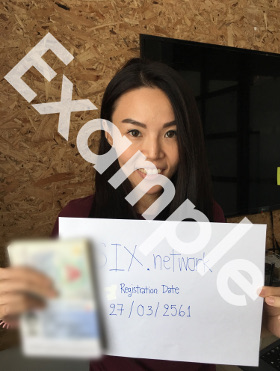 Example
SIX.network
Registration Date
27/03/2561